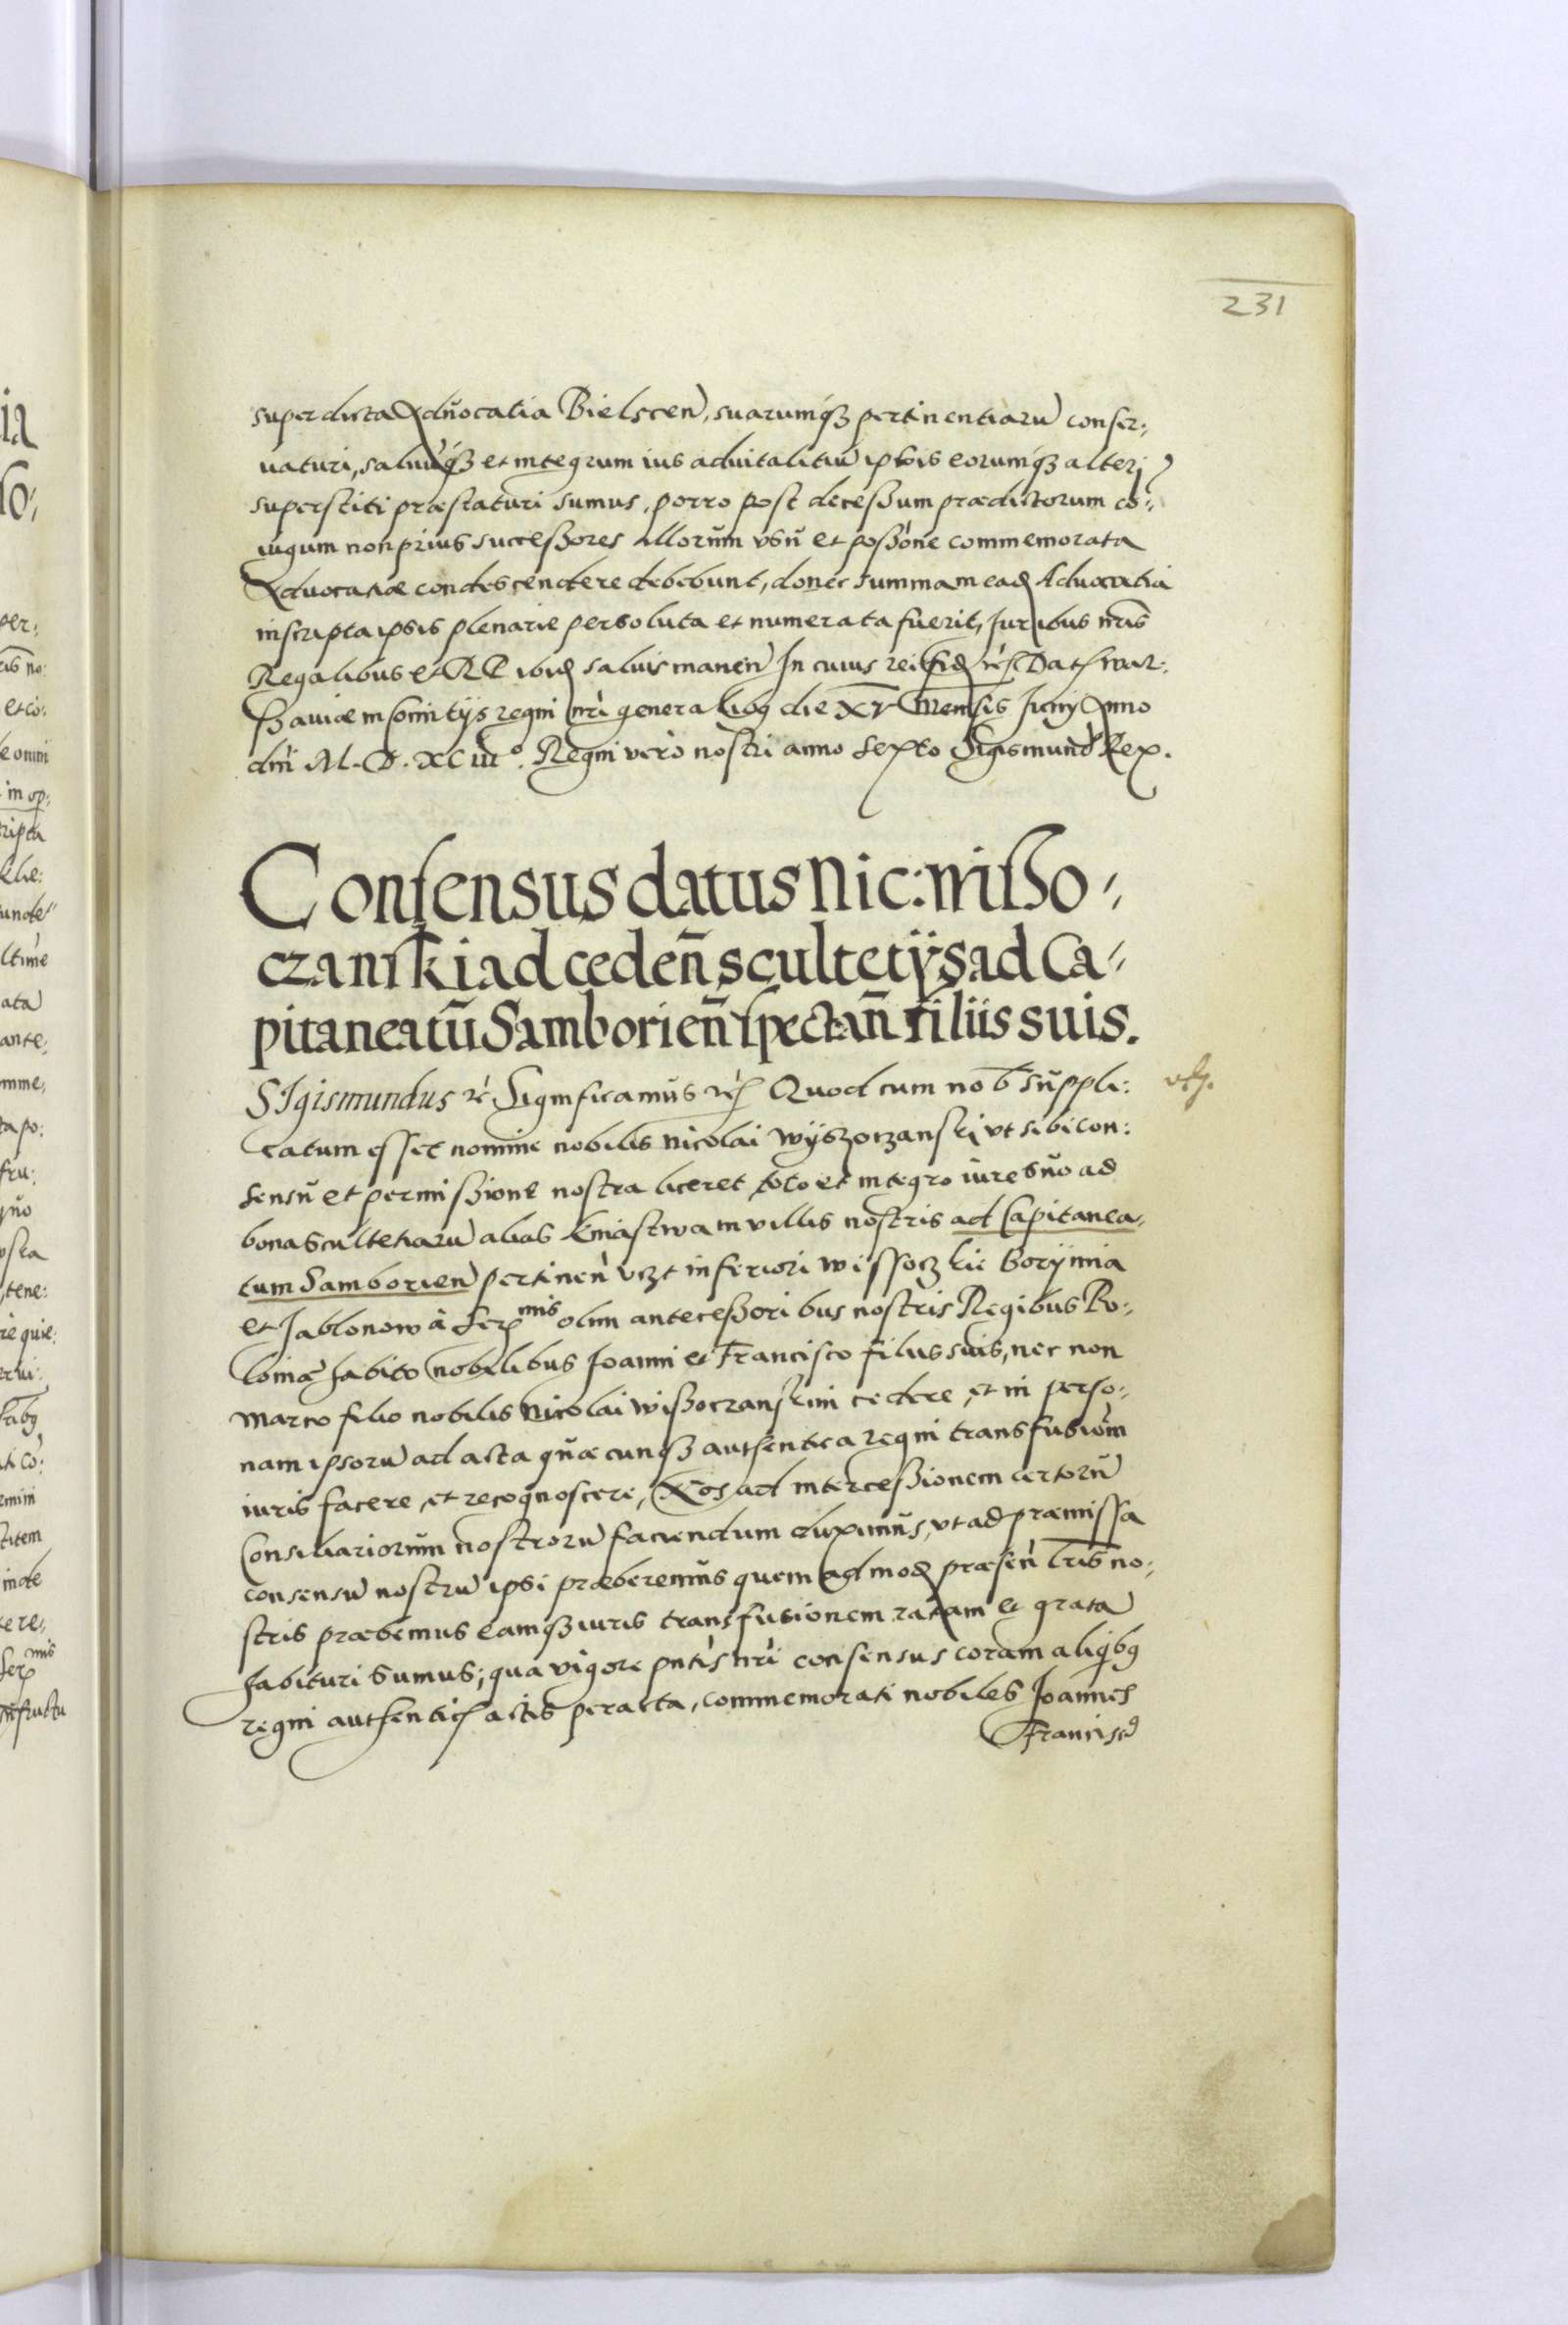 231
super dicta Aduocatia Bielscen̄, suarumqȝ pertinentiarū conser:
uaturi, saluūqȝ et integrum ius aduitalitiū ipsis eorumqȝ alteri
superstiti præstaturi sumus, porro post decessum prædictorum cō:
iugum non prius successores illorum vsu et possōne commemorata
Aduocatiæ condescendere debebunt, donec summam eadē Aduocatia
inscripta ipsis plenarie persoluta et numerata fuerit, Juribus nr̄is
Regalibus et RP ibidē saluis manen̄ In cuius rei fidē etc Dat War:
ssauiæ in Comitijs regni nr̄i generalibꝰ die XV Mensis Junij Anno
dn̄i M. D. XCiii°. Regni vero nostri anno Sexto Sigismundꝰ Rex.
Consensus datus Nic: Wisso,
czanski ad ceden̄ scultetijs ad Ca,
pitaneatū Samborien̄ spectan̄ filiis suis.
SIgismundus etc Significamus etc Quod cum nob suppli:
catum esset nomine nobilis Nicolai Wyszoczanski vt sibi con:
sensu et permissione nostra liceret toto et integro iure suo ad
bona scultetiarū alias Kniastwa in villis nostris ad Capitanea,
tum Samborien̄ pertinen̄ vczt inferiori Wissoczkie Borijnia
et Jablonow à Ser mis olim antecessoribus nostris Regibus Po:
loniæ habito nobilibus Joanni et Francisco filiis suis, nec non
Marco filio nobilis Nicolai Wissoczanskim cedere, et in perso:
nam ipsorū ad acta quæcunqȝ authentica regni transfusiōm
iuris facere, et recognoscere, Nos ad intercessionem certorū
Consiliariorum nostrorū faciendum duximus, vt ad præmissa
consensū nostrū ipsi præberemus quem ad modū præsen̄ lr̄is no:
stris præbemus eamqȝ iuris transfusionem ratam et gratā
habituri sumus; qua vigore pn̄tis nr̄i consensus coram aliqbꝰ
regni authentic actis peracta, commemorati nobiles Joannes
Franciscꝰ